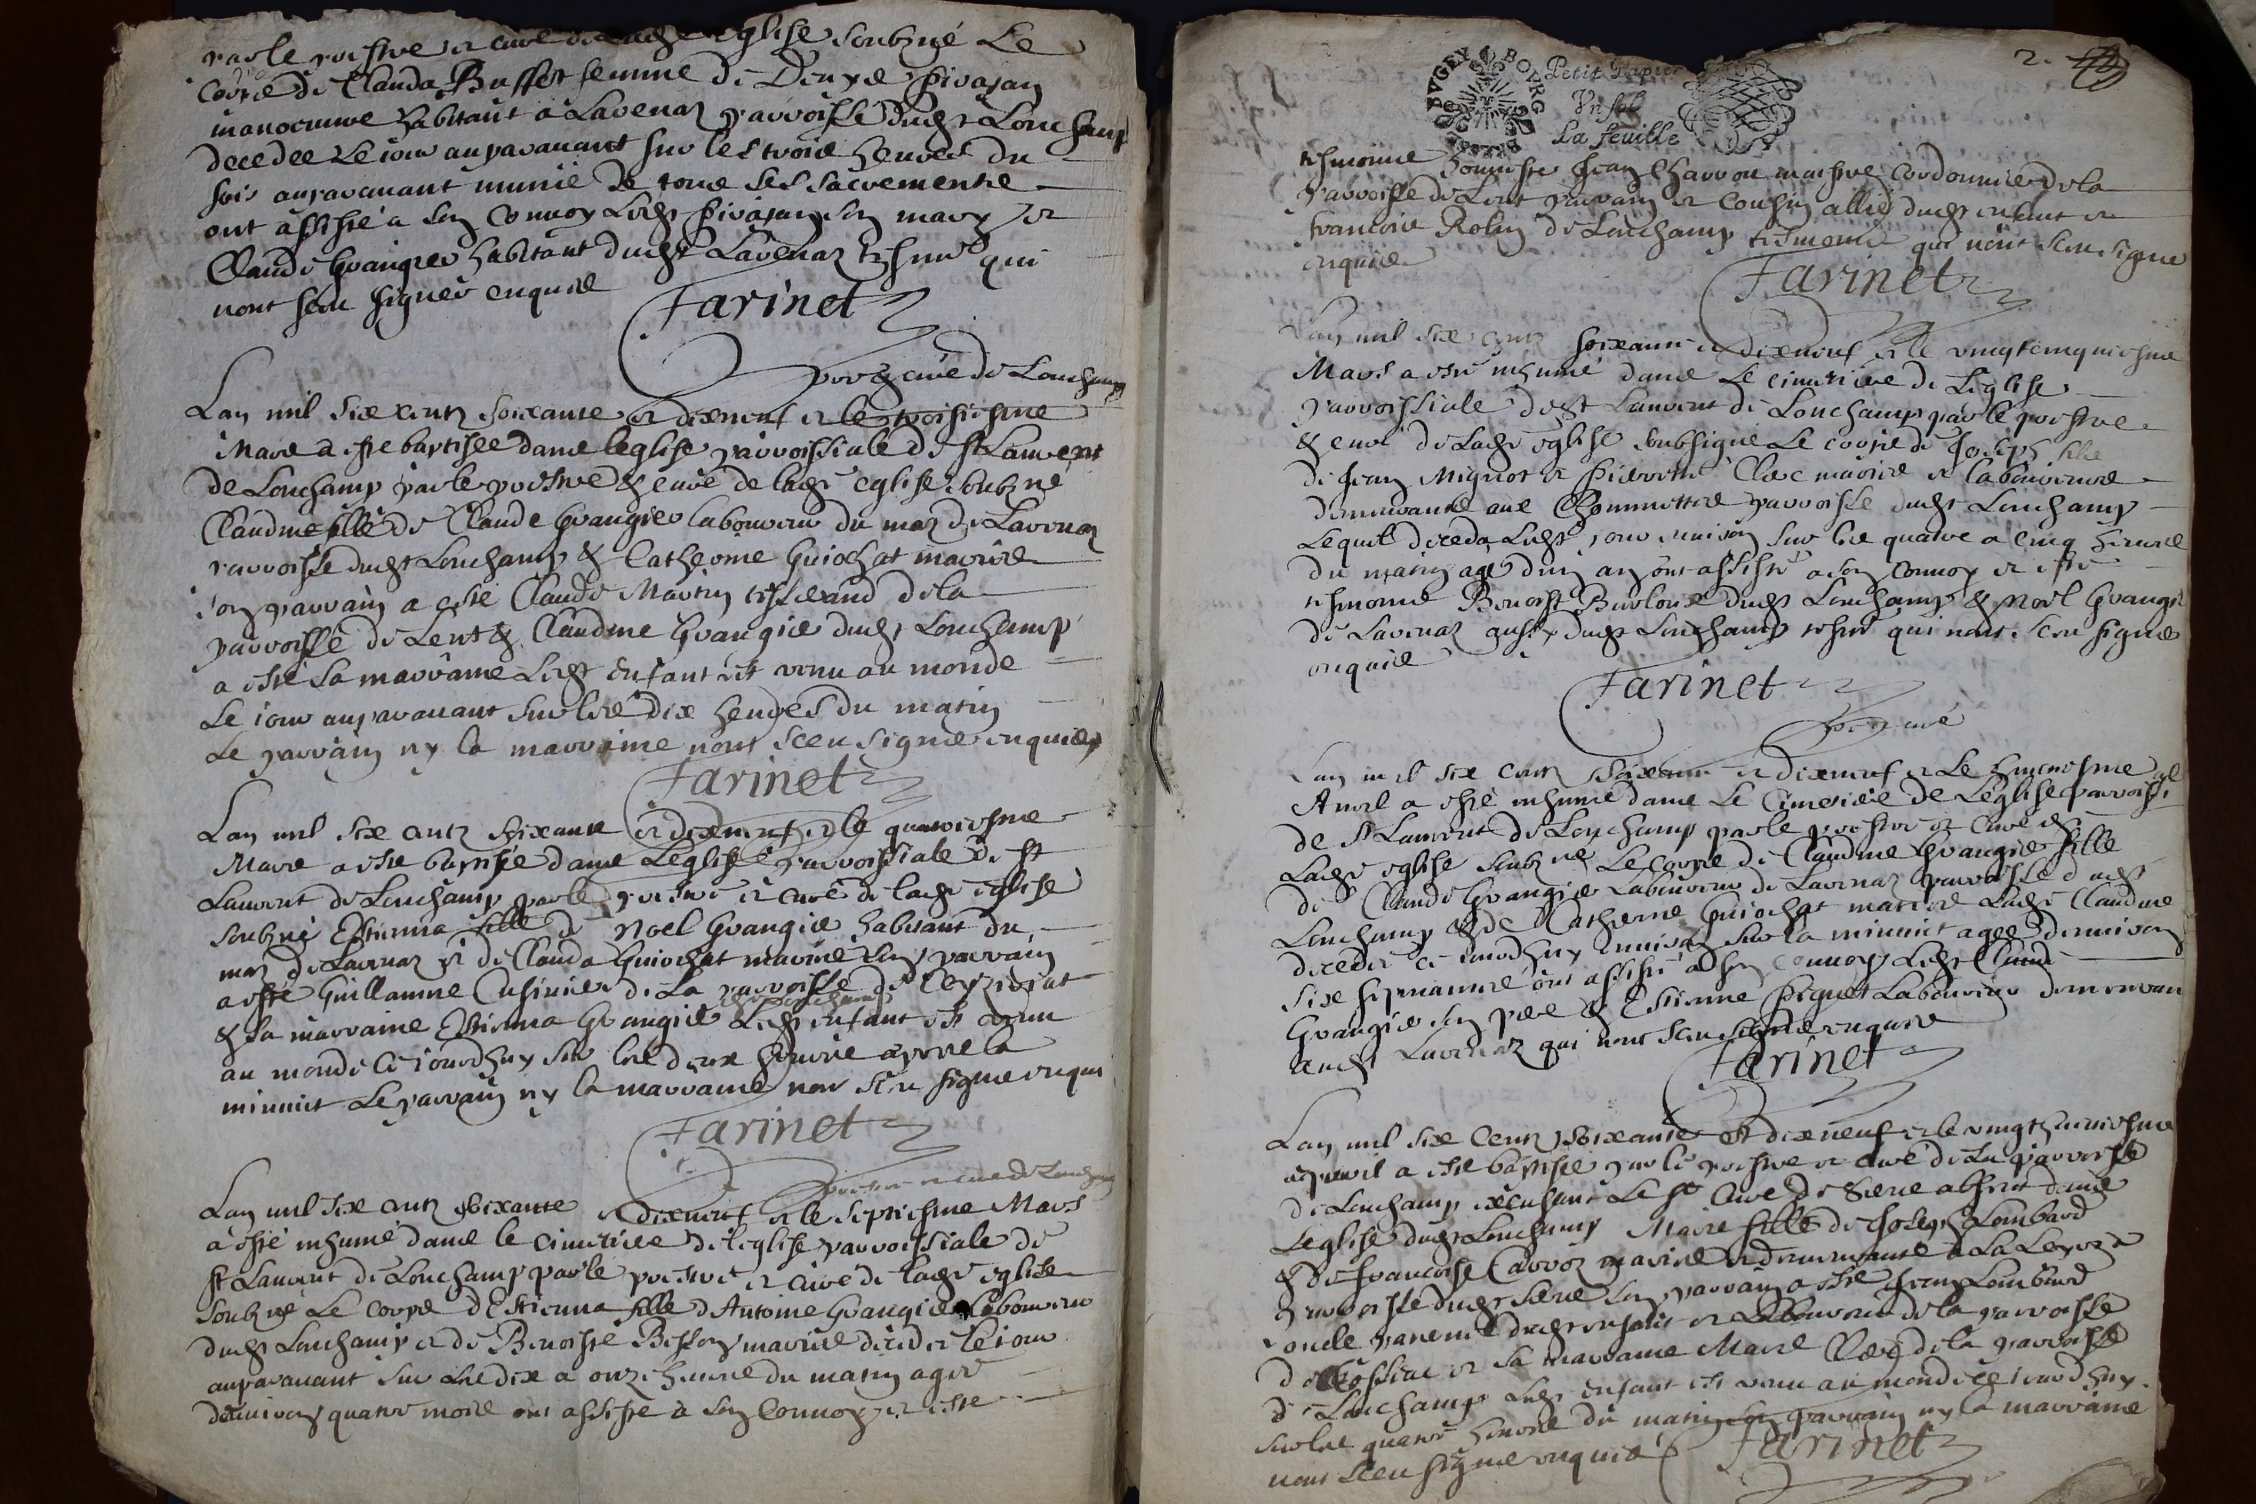 par le prestre et curé de ladte eglise soubzné Le
Corps de Clauda Buffet femme de Denys Pivajan
manoeuvre habitant à Lavenaz parroisse dudt Lonchamp
decedee Le iour auparavant sur les trois heures du
soir auparavant munie de tous ses sacrements
ont assisté a son Convoy Ledt Pivajan son mary et
Claude Grangier habitant dudt Lavenaz tesmns qui
nont sceu signer enquis
Farinet
pre & curé de Lonchamp
Lan mil six cents soixante et dixneuf et le troisiesme
Mars a esté baptisée dans leglise parroissiale de st Laurent
de Lonchamp par le prestre & curé de ladte eglise soubzné
Claudine fille de Claude Grangier laboureur du maz de Lavenaz
parroisse dudt Lonchamp & Catherine Guiochat mariés
son parrain a esté Claude Martin tisserand de la
parroisse de Lent & Claudine Grangier dudt Lonchamp
a esté sa marraine Ledt enfant est venu au monde
Le iour auparavant sur les dix heures du matin
Le parrain ny la marraine nont sceu signer enquis
Farinet
Lan mil six cents soixante et dixneuf et le quatriesme
Mars a esté baptisée dans Leglise parroissiale de st
Laurent de Lonchamp par le prestre et curé de ladte eglise
soubzné Estienna fille de Noel Grangier habitant du
maz de Lavenaz et de Clauda Guiochat mariés son parrain
a esté Guillaume Cusinier de La parroisse de Ceyzeriat
& sa marraine Estienna Grangier dudt Lonchamp Ledt enfant est venu
au monde ce iourdhuy sur les deux heures apres la
minuict Le parrain ny la marraine nont sceu signer enquis
Farinet
prestre et curé de Lonchamp
Lan mil six cents soixante et dixneuf et le septiesme Mars
a esté inhumé dans le cimetiere de leglise parroissiale de
st Laurent de Lonchamp par le prestre et curé de ladte eglise
soubzné Le corps dEstienna fille dAntoine Grangier Laboureur
dudt Lonchamp et de Benoiste Besson mariés decedee le iour
auparavant sur les dix a onze heures du matin agée
denviron quatre mois ont assisté à son Convoy et esté
2.
BVGEY BOVRG
Petit Papier
Vn sol
La feuille
tesmoins honneste Jean Charron maistre Cordonnier de la
parroisse de Lent parrain et cousin allié dudt enfant et
francois Robin de Lonchamp tesmoins qui nont sceu signer
enquis
Farinet
Lan mil six cents soixante et dixneuf et le vingtcinquiesme
Mars a esté inhumé dans Le cimetiere de Leglise
parroissiale de st Laurent de Lonchamp par le prestre
& curé de Ladte eglise soubsigné Le corps de Joseph filz
de Jean Mignot et Pierrette Clerc mariés et laboureurs
demeurants aux Chommettes parroisse dudt Lonchamp
Lequel deceda Ledt jour environ sur les quatre a cinq heures
du matin agé dun an ont assisté a son Convoy et esté
tesmoins Benoist Burloux dudt Lonchamp & Noël Grangier
de Lavenaz aussy dudt Lonchamp tesmns qui nont sceu signer
enquis
Farinet
pre et curé
Lan mil six cents soixante et dixneuf et Le huictiesme
Avril a esté inhumé dans Le Cimetiere de Leglise parroissiale
de st Laurent de Lonchamp par le prestre et curé de
Ladte eglise soubzné Le corps de Claudine Grangier fille
de Claude Grangier Laboureur de Lavenaz parroisse dudt
Lonchamp & de Catherine Guiochat mariés Ladte Claudine
decedée ce iourdhuy environ sur la minuict agée denviron
six sepmaines ont assisté a son Convoy Ledt Claude
Grangier son pere & Estienne Piguet Laboureur demeurant
audt Lavenaz qui nont sceu signer enquis
Farinet
Lan mil six Cents soixante et dixneuf et le vingthuictiesme
apvril a esté baptisée par le prestre et curé de la parroisse
de Lonchamp excusant Le sr Curé de Serve absent dans
Leglise dudt Lonchamp Marie fille de Joseph Lombard
& de francoise Carroz mariés et demeurants à La
parroisse dudt Serve son parrain a esté Jean Lombard
oncle paternel dudt enfant et Laboureur de la parroisse
de et sa marraine Marie Clerc de la parroisse
de Lonchamp Ledt enfant est venu au monde ce iourdhuy
sur les quatre heures du matin Le parrain ny la marraine
nont sceu signer enquis
Farinet